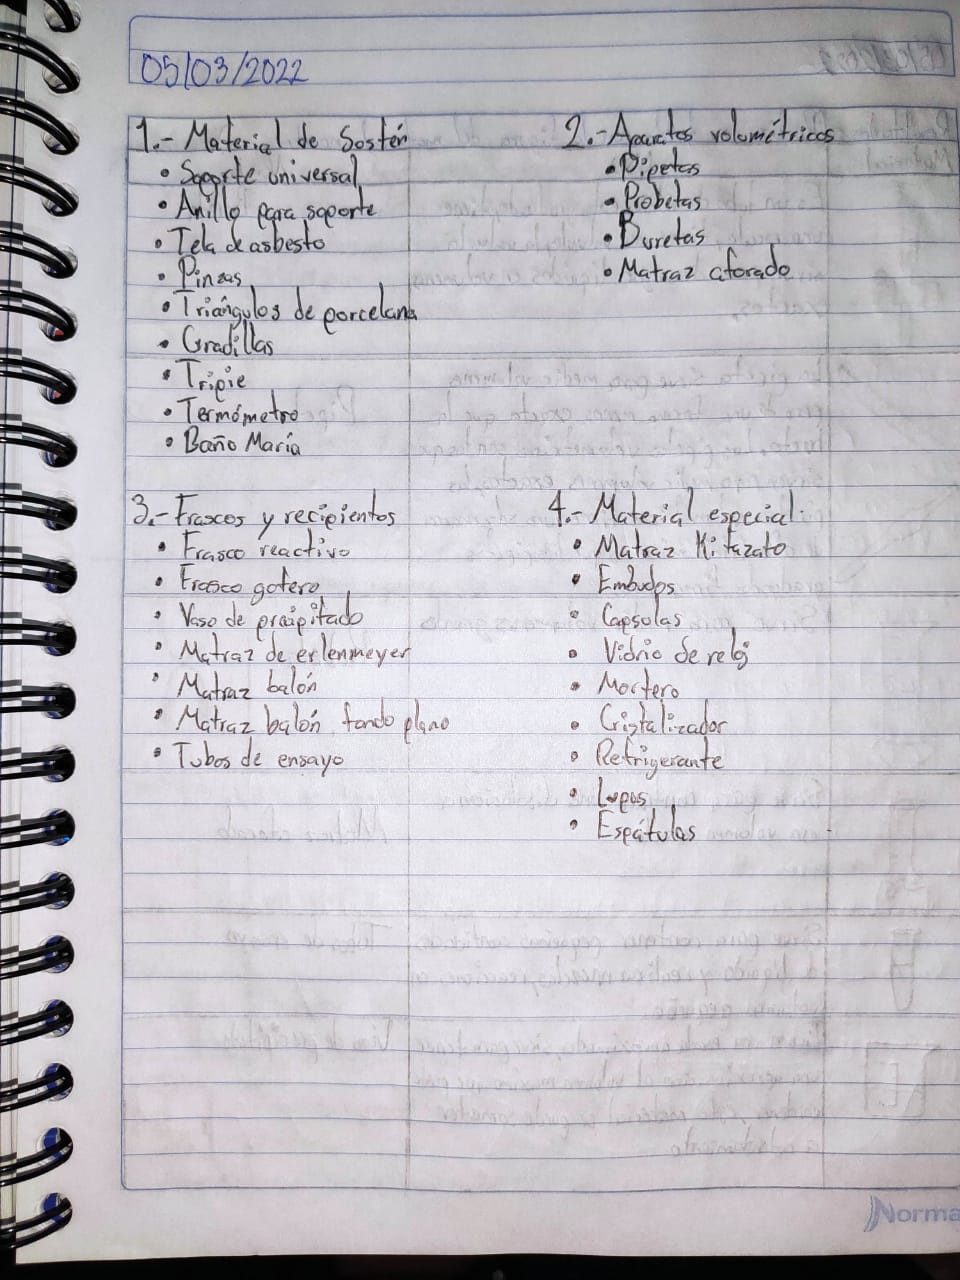 05/03/2022
1.- Material de Sostén
• Soporte universal
• Anillo para soporte
• Tela de asbesto
• Pinzas
• Triángulos de porcelana
• Gradillas
• Tripie
• Termómetro
• Baño María
2.- Aparatos volométricos
• Pipetas
• Probetas
• Buretas
• Matraz aforado
3.- Frascos y recipientos
• Frasco reactivo
• Frasco gotero
• Vaso de precipitado
• Matraz de erlenmeyer
• Matraz balón
• Matraz balón fondo plano
• Tubos de ensayo
4.- Material especial.
• Matraz Kitazato
• Embudos
• Capsolas
• Vidrio de reloj
• Mortero
• Cristalizador
• Refrigerante
• Lupas
• Espátulas
Norma